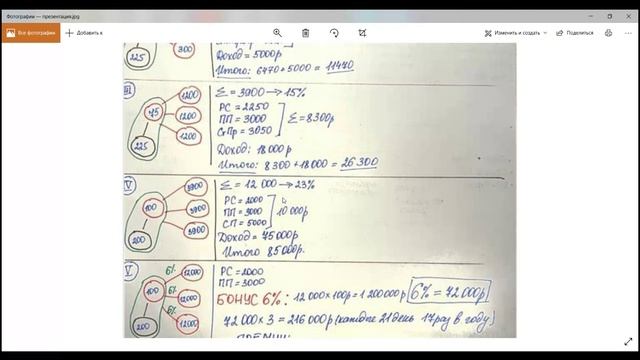 Фотографии — презентация.jpg
Все фотографии
Добавить к
Изменить и создать
Поделиться
300
225
Доход = 5000р
Итого: 6470 + 5000 = 11470
III
75
1200
1200
1200
225
Σ = 3900 → 15%
РС = 2250
ПП = 3000
СпПр = 3050
Σ = 8300р
Доход: 18000р
Итого: 8300 + 18000 = 26300
V
100
3900
3900
3900
200
Σ = 12 000 → 23%
РС = 2000
ПП = 3000
СП = 5000
10 000р
Доход = 75000р
Итого 85000р.
V
6%
6%
6%
100
12000
12000
12000
200
РС = 2000
ПП = 3000
БОНУС 6%: 12000 × 100р = 1 200 000р 6% = 72 000р
72 000 × 3 = 216 000р (каждые 21 день 17 раз в году)